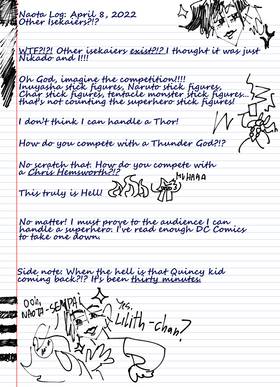 Naota Log: April 8, 2022
Other Isekaiers?!?
WTF?!?! Other isekaiers exist?!? I thought it was just
Nikado and I!!!
Oh God, imagine the competition!!!!
Inuyasha stick figures, Naruto stick figures,
Char stick figures, tentacle monster stick figures...
that's not counting the superhero stick figures!
I don't think I can handle a Thor!
How do you compete with a Thunder God?!?
No scratch that. How do you compete with
a Chris Hemsworth?!?
This truly is Hell!
No matter! I must prove to the audience I can
handle a superhero. I've read enough DC Comics
to take one down.
Side note: When the hell is that Quincy kid
coming back?!? It's been thirty minutes.
NAOTA-SEMPAI
Yes,
Lilith-chan?